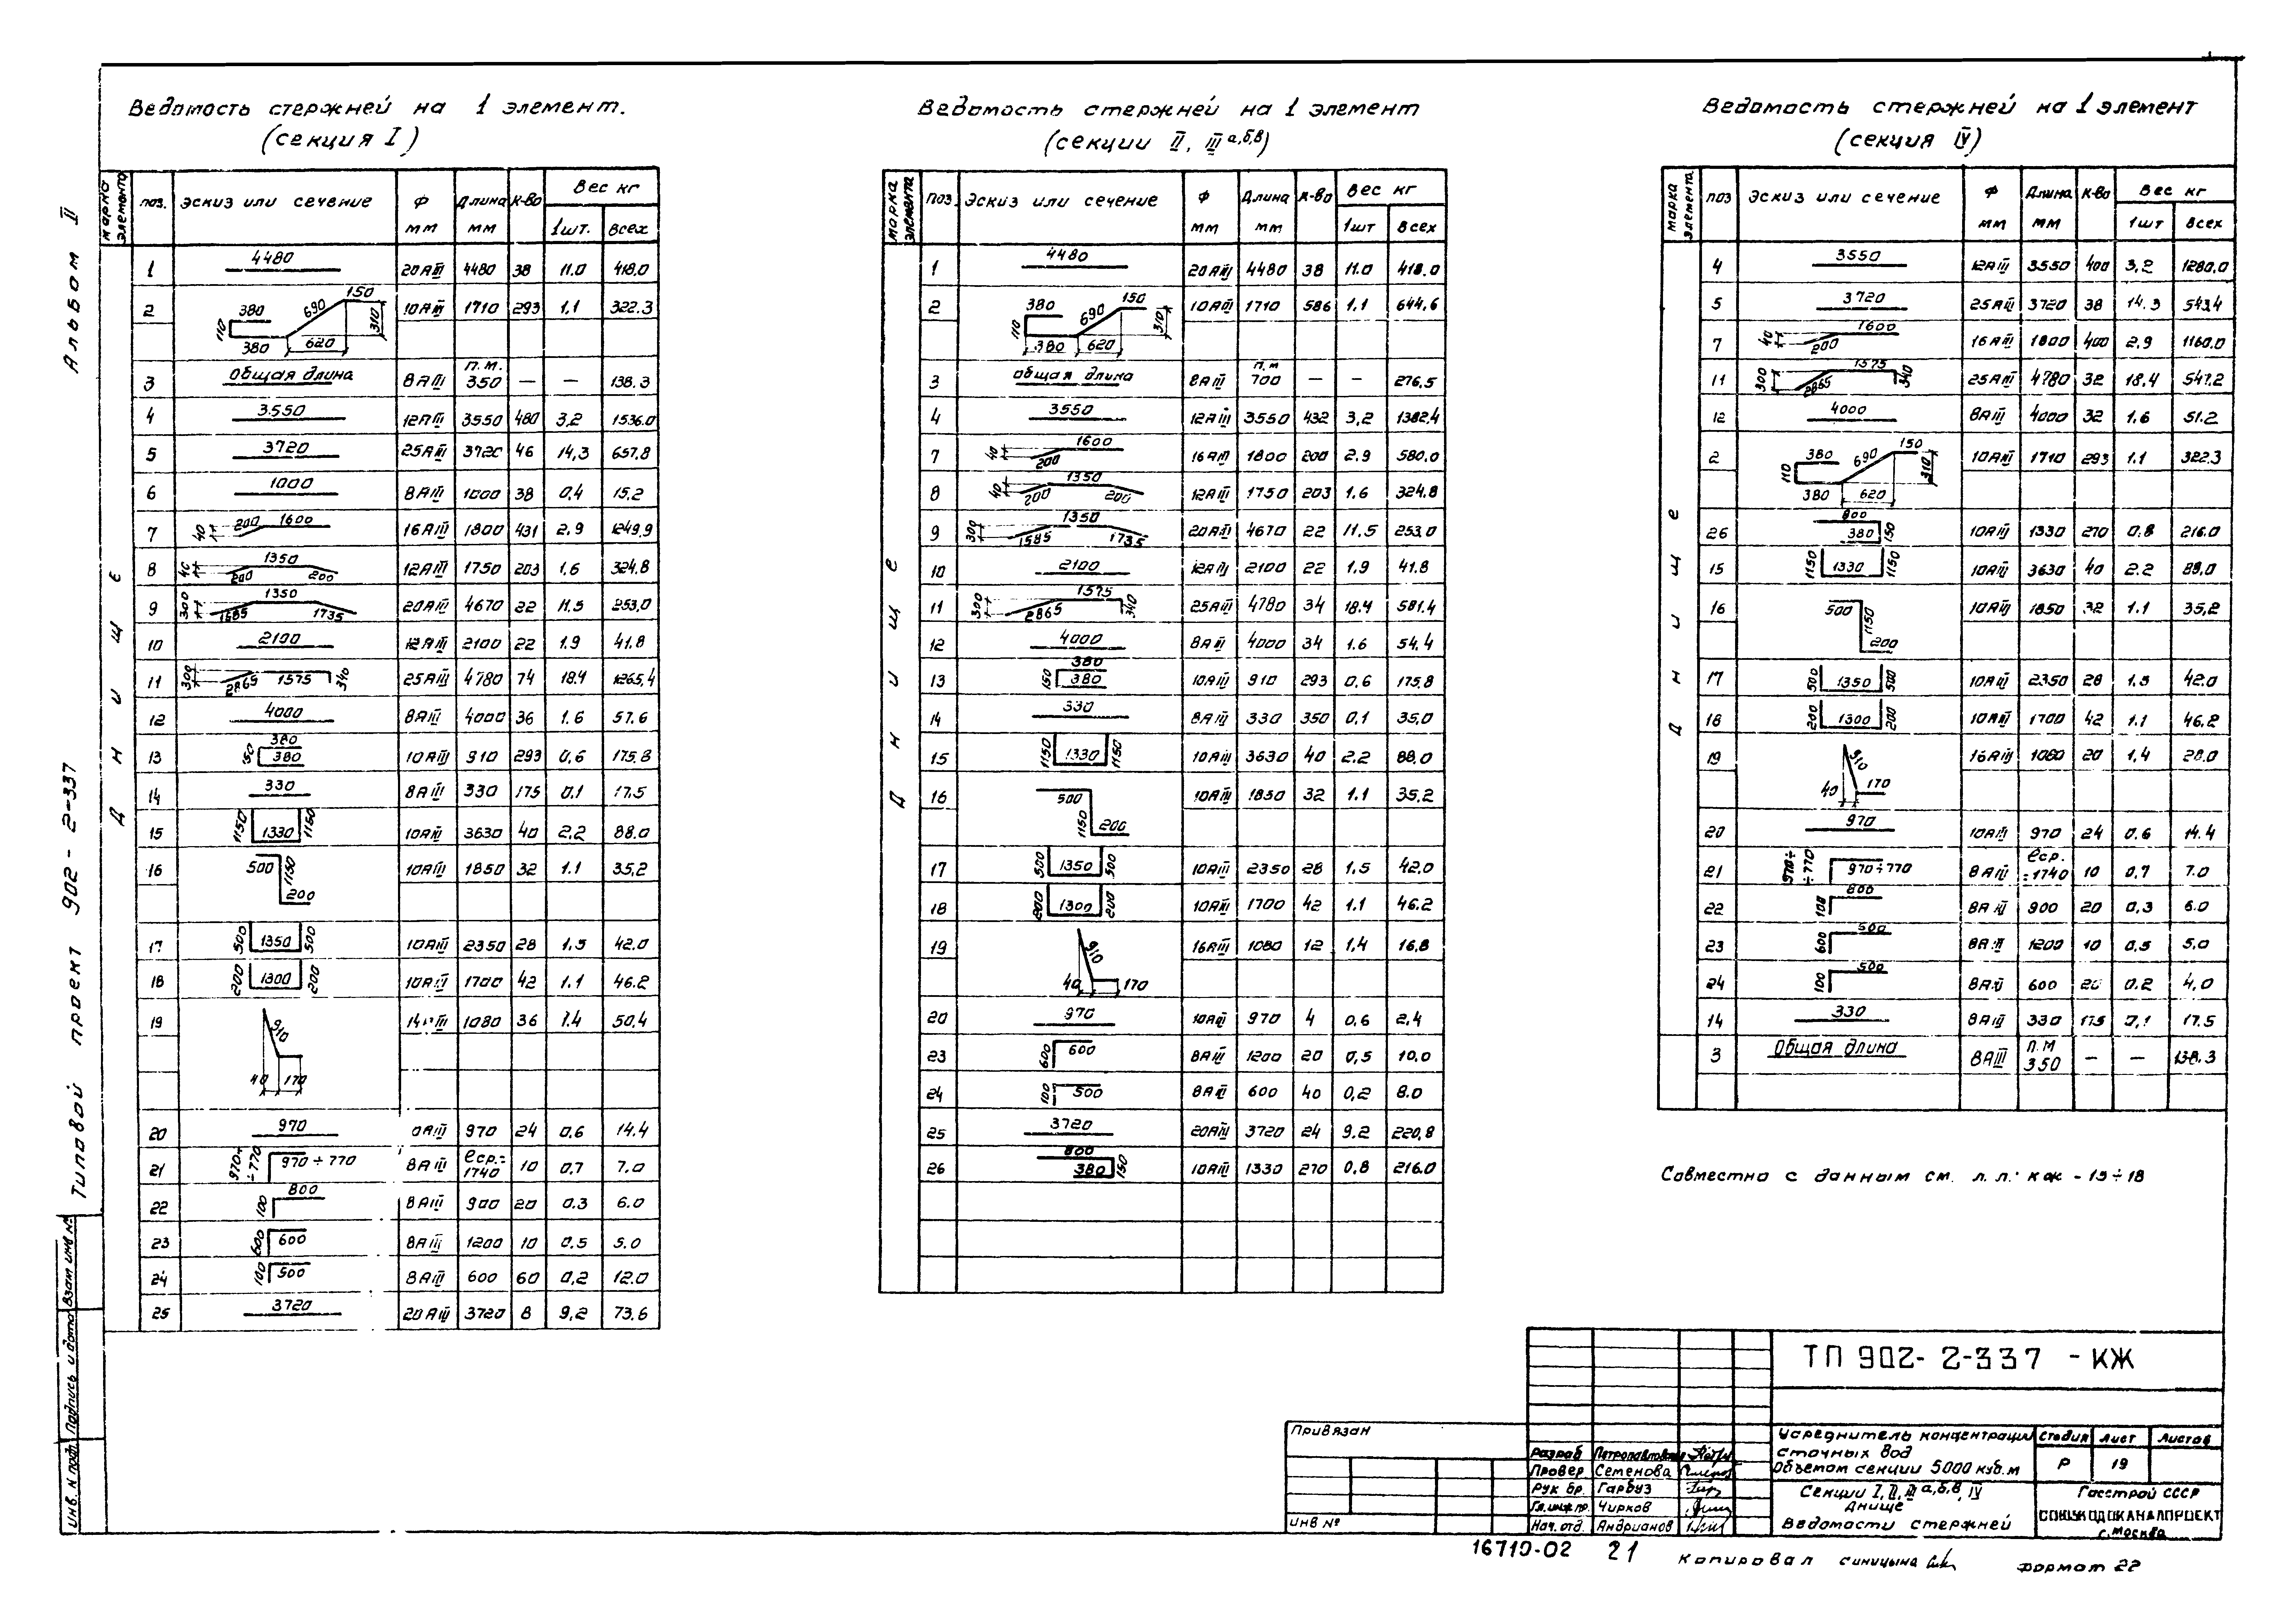 Альбом II
Типовой проект 902-2-337
Взам инв №
Подпись и дата
Инв. N подл.
Ведомость стержней на 1 элемент.
(секция I)
марка элемента поз. Эскиз или сечение Ф мм Длина мм К-во Вес кг 1шт. Всех
Днище
1 4480 20АIII 4480 38 11.0 418.0
2 380 110 380 690 150 310 620 10АIII 1710 293 1.1 322.3
3 Общая длина 8АIII п.м. 350 — — 138.3
4 3550 12АIII 3550 480 3,2 1536.0
5 3720 25АIII 3720 46 14,3 657,8
6 1000 8АIII 1000 38 0.4 15.2
7 40 200 1600 16АIII 1800 431 2.9 1249.9
8 40 200 1350 200 12АIII 1750 203 1.6 324.8
9 300 1585 1350 1735 20АIII 4670 22 11.5 253,0
10 2100 12АIII 2100 22 1.9 41.8
11 300 2865 1575 340 25АIII 4780 74 18.4 1265,4
12 4000 8АIII 4000 36 1.6 57.6
13 150 380 380 10АIII 910 293 0,6 175.8
14 330 8АIII 330 175 0.1 17.5
15 1150 1330 1150 10АIII 3630 40 2.2 88.0
16 500 1150 200 10АIII 1850 32 1.1 35,2
17 500 1350 500 10АIII 2350 28 1,5 42.0
18 200 1300 200 10АIII 1700 42 1.1 46.2
19 910 40 170 1080 36 1.4 50,4
20 970 0АIII 970 24 0.6 14.4
21 970÷÷770 970÷770 8АIII ℓср.= 1740 10 0.7 7.0
22 100 800 8АIII 900 20 0.3 6.0
23 600 600 8АIII 1200 10 0.5 5.0
24 100 500 8АIII 600 60 0,2 12.0
25 3720 20АIII 3720 8 9,2 73.6
Ведомость стержней на 1 элемент
(секции II, III а,б,в)
марка элемента Поз. Эскиз или сечение Ф мм Длина мм К-во Вес кг 1шт Всех
Днище
1 4480 20АIII 4480 38 11.0 418.0
2 380 110 380 690 150 310 620 10АIII 1710 586 1.1 644,6
3 общая длина 8АIII п.м 700 — — 276,5
4 3550 12АIII 3550 432 3,2 1382,4
7 40 200 1600 16АIII 1800 200 2.9 580,0
8 40 200 1350 200 12АIII 1750 203 1.6 324,8
9 300 1585 1350 1735 20АIII 4670 22 11,5 253.0
10 2100 12АIII 2100 22 1.9 41.8
11 300 2865 1575 340 25АIII 4780 34 18.4 581.4
12 4000 8АIII 4000 34 1.6 54,4
13 150 380 380 10АIII 910 293 0,6 175,8
14 330 8АIII 330 350 0,1 35,0
15 1150 1330 1150 10АIII 3630 40 2.2 88,0
16 500 1150 200 10АIII 1850 32 1.1 35,2
17 500 1350 500 10АIII 2350 28 1,5 42,0
18 200 1300 200 10АIII 1700 42 1.1 46.2
19 910 40 170 16АIII 1080 12 1,4 16,8
20 970 10АIII 970 4 0,6 2,4
23 600 600 8АIII 1200 20 0,5 10,0
24 100 500 8АIII 600 40 0,2 8.0
25 3720 20АIII 3720 24 9.2 220,8
26 800 380 150 10АIII 1330 270 0,8 216.0
Ведомость стержней на 1 элемент
(секция IV)
марка элемента поз Эскиз или сечение Ф мм Длина мм К-во Вес кг 1шт Всех
Днище
4 3550 12АIII 3550 400 3,2 1280,0
5 3720 25АIII 3720 38 14.3 543.4
7 40 200 1600 16АIII 1800 400 2.9 1160.0
11 300 2865 1575 340 25АIII 4780 32 18,4 547.2
12 4000 8АIII 4000 32 1.6 51.2
2 380 110 380 690 150 310 620 10АIII 1710 293 1.1 322.3
26 800 380 150 10АIII 1330 270 0,8 216.0
15 1150 1330 1150 10АIII 3630 40 2.2 88,0
16 500 1150 200 10АIII 1850 32 1.1 35,2
17 500 1350 500 10АIII 2350 28 1,5 42.0
18 200 1300 200 10АIII 1700 42 1.1 46.2
19 910 40 170 16АIII 1080 20 1,4 28.0
20 970 10АIII 970 24 0.6 14.4
21 970÷÷770 970÷770 8АIII ℓср. =1740 10 0,7 7.0
22 100 800 8АIII 900 20 0,3 6.0
23 600 500 8АIII 1200 10 0,5 5,0
24 100 500 8АIII 600 20 0.2 4,0
14 330 8АIII 330 175 0,1 17.5
3 Общая длина 8АIII п.м 350 — — 138.3
Совместно с данным см. л.л.: кж - 15÷18
ТП 902-2-337 -КЖ
Привязан
Инв №
Разраб Петропавловская
Провер Семенова
Рук бр. Гарбуз
Гл.инж.пр. Чирков
Нач. отд. Андрианов
Усреднитель концентрации
сточных вод
Объемом секции 5000 куб.м
Стадия Лист Листов
Р 19
Секции I, II, III а,б,в, IV
Днище
Ведомости стержней
Госстрой СССР
СОЮЗВОДОКАНАЛПРОЕКТ
г. Москва
16710-02 21
Копировал Синицына
Формат 22